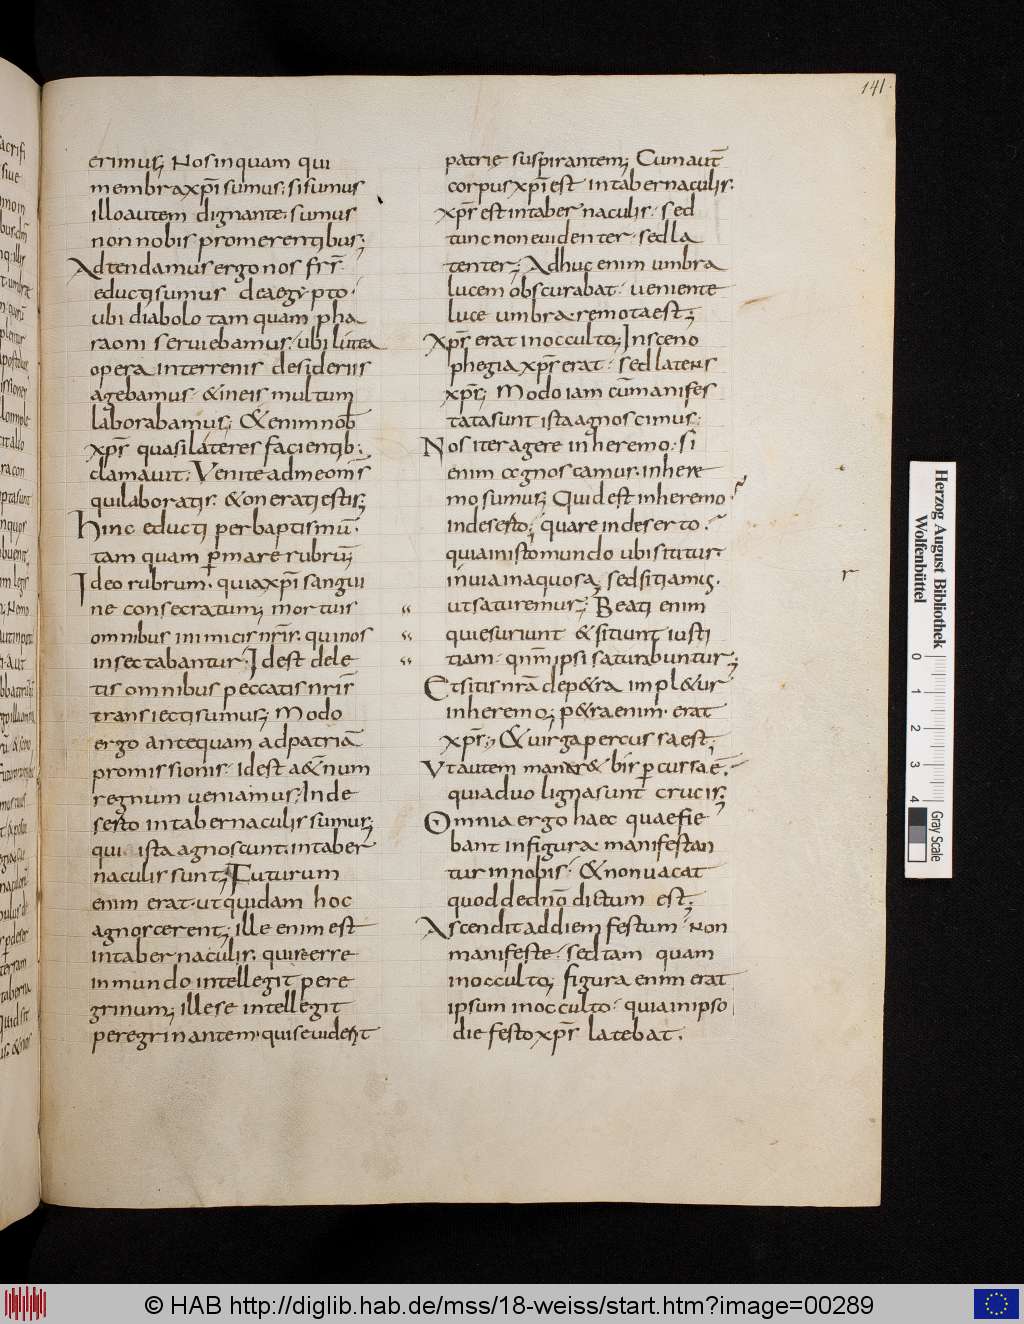 141
erimus; Nos inquam qui
membra xp̅i sumus; si sumus
illo autem dignante; sumus
non nobis promerentibus;
Adtendamus ergo nos fr̅s·
educti sumus de aegypto·
ubi diabolo tamquam pha
raoni serviebamus; ubi lutea
opera in terrenis desideriis
agebamus· & in eis multum
laborabamus; & enim nob̅
xp̅s quasi lateres facientib;
clamavit; Venite ad me om̅s
qui laboratis· & onerati estis;
Hinc educti per baptismu̅·
tam quam p̲ mare rubru̅;
Ideo rubrum· quia xp̅i sangui
ne consecratum; mortuis
omnibus inimicis nr̅is· qui nos
insectabantur· Id est dele
tis omnibus peccatis nr̅is
transiecti sumus; Modo
ergo antequam ad patria̅
promissionis· id est a&̅num
regnum veniamus; In de
serto in tabernaculis sumus;
qui ista agnoscunt· in taber
naculis sunt; Futurum
enim erat· ut quidam hoc
agnoscerent; ille enim est
in tabernaculis· qui se erre
in mundo intellegit pere
grinum; ille se intellegit
peregrinantem· qui se videt
patrie suspirantem; Cum aut̅
corpus xp̅i est in tabernaculis·
xp̅s est in tabernaculis· sed
tunc non evidenter· sed la
tenter; Adhuc enim umbra
lucem obscurabat· veniente
luce umbra remota est;
Xp̅s erat in occulto; In sceno
phegia xp̅s erat· sed latens
xp̅s; Modo iam cu̅ manifes
tata sunt ista agnoscimus;
Nos iter agere in heremo· si
enim cognoscamus· in here
mo sumus; Quid est in heremo·
in deserto; quare in deserto·
quia in isto mundo ubi sititur
in via inaquosa; sed sitiamus·
ut saturemur; Beati enim
qui esuriunt & sitiunt iusti
tiam· qn̅m ipsi saturabuntur;
Et sitis nr̅a de p&ra impl&ur
in heremo; p&ra enim· erat
xp̅s; & virga percussa est;
Ut autem manar&· bis p̲cussa e̅·
quia duo ligna sunt crucis;
Omnia ergo haec quae fie
bant in figura· manifestan
tur in nobis· & non vacat
quod de dn̅o dictum est;
Ascendit ad diem festum· Non
manifeste· sed tam quam
in occulto; figura enim erat
ipsum in occulto· quia in ipso
die festo xp̅s latebat·
Herzog August Bibliothek
Wolfenbüttel
0 1 2 3 4
Gray Scale
© HAB http://diglib.hab.de/mss/18-weiss/start.htm?image=00289